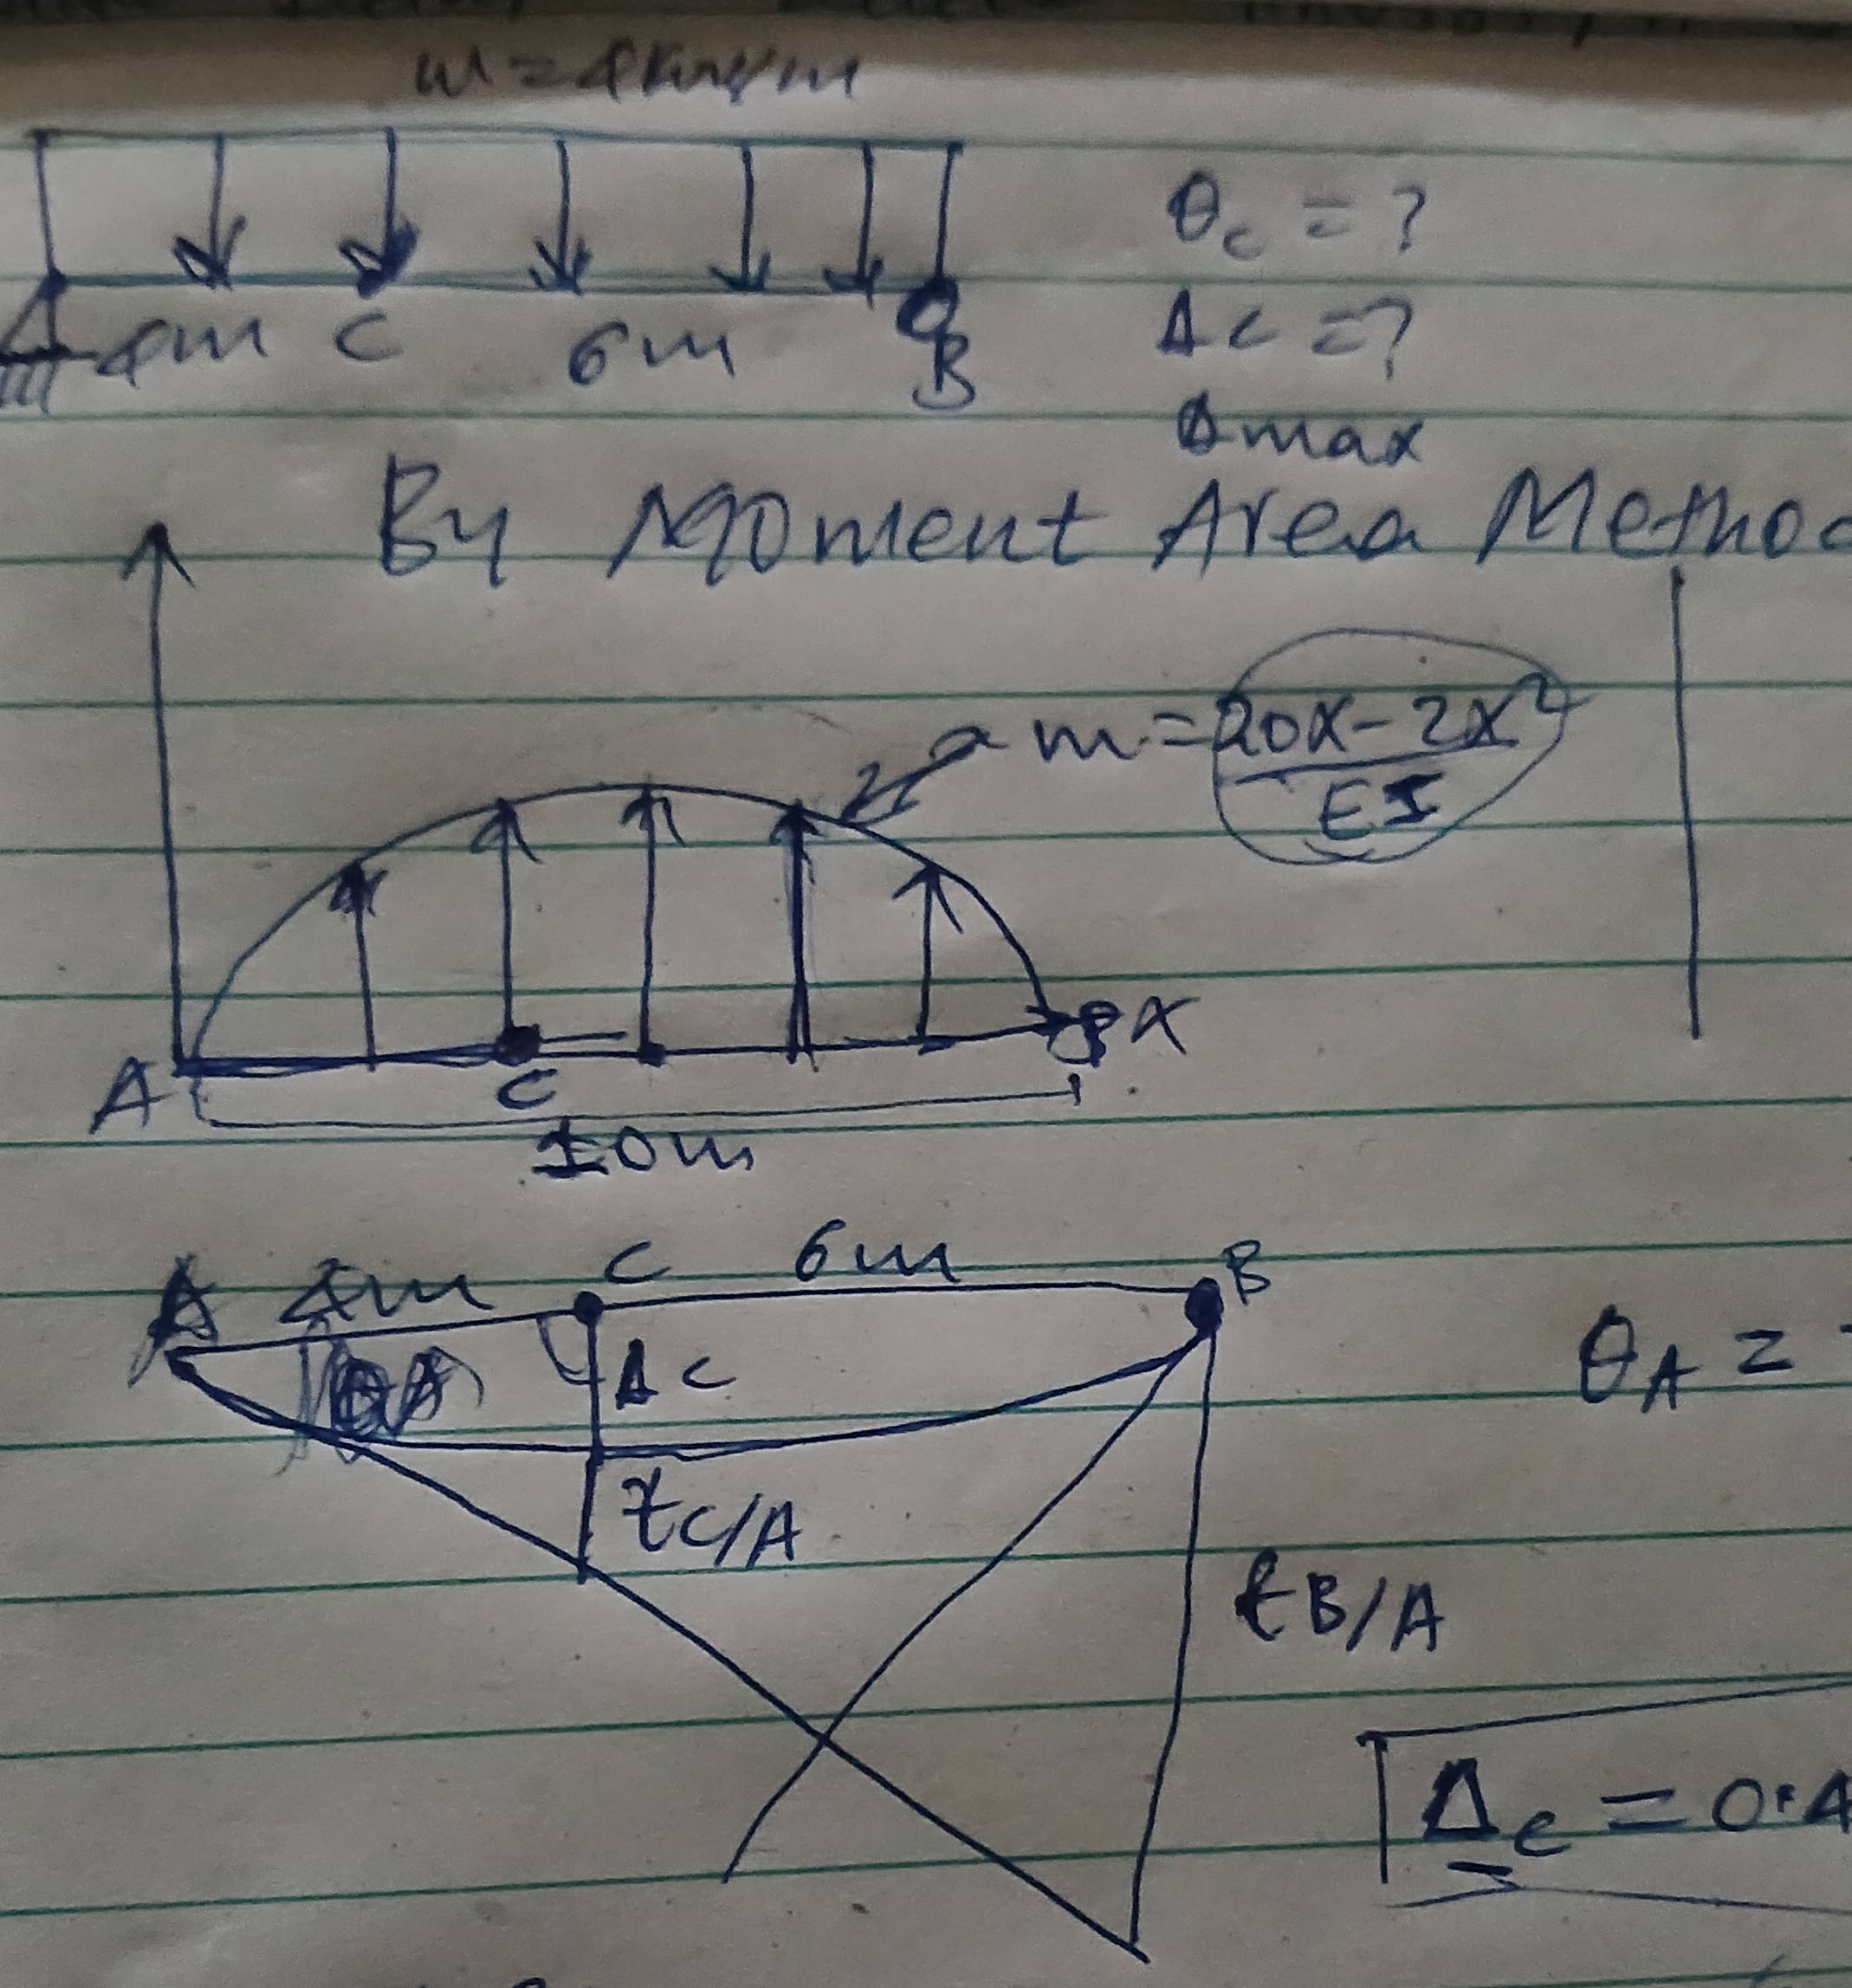 w = 4kN/m
θc = ?
4m C 6m B
Δc = ?
Δmax
By Moment Area Method
m = 20x - 2x²
EI
A C B x
10m
A 4m C 6m B
Δc
θA =
tC/A
tB/A
Δc = 0.4